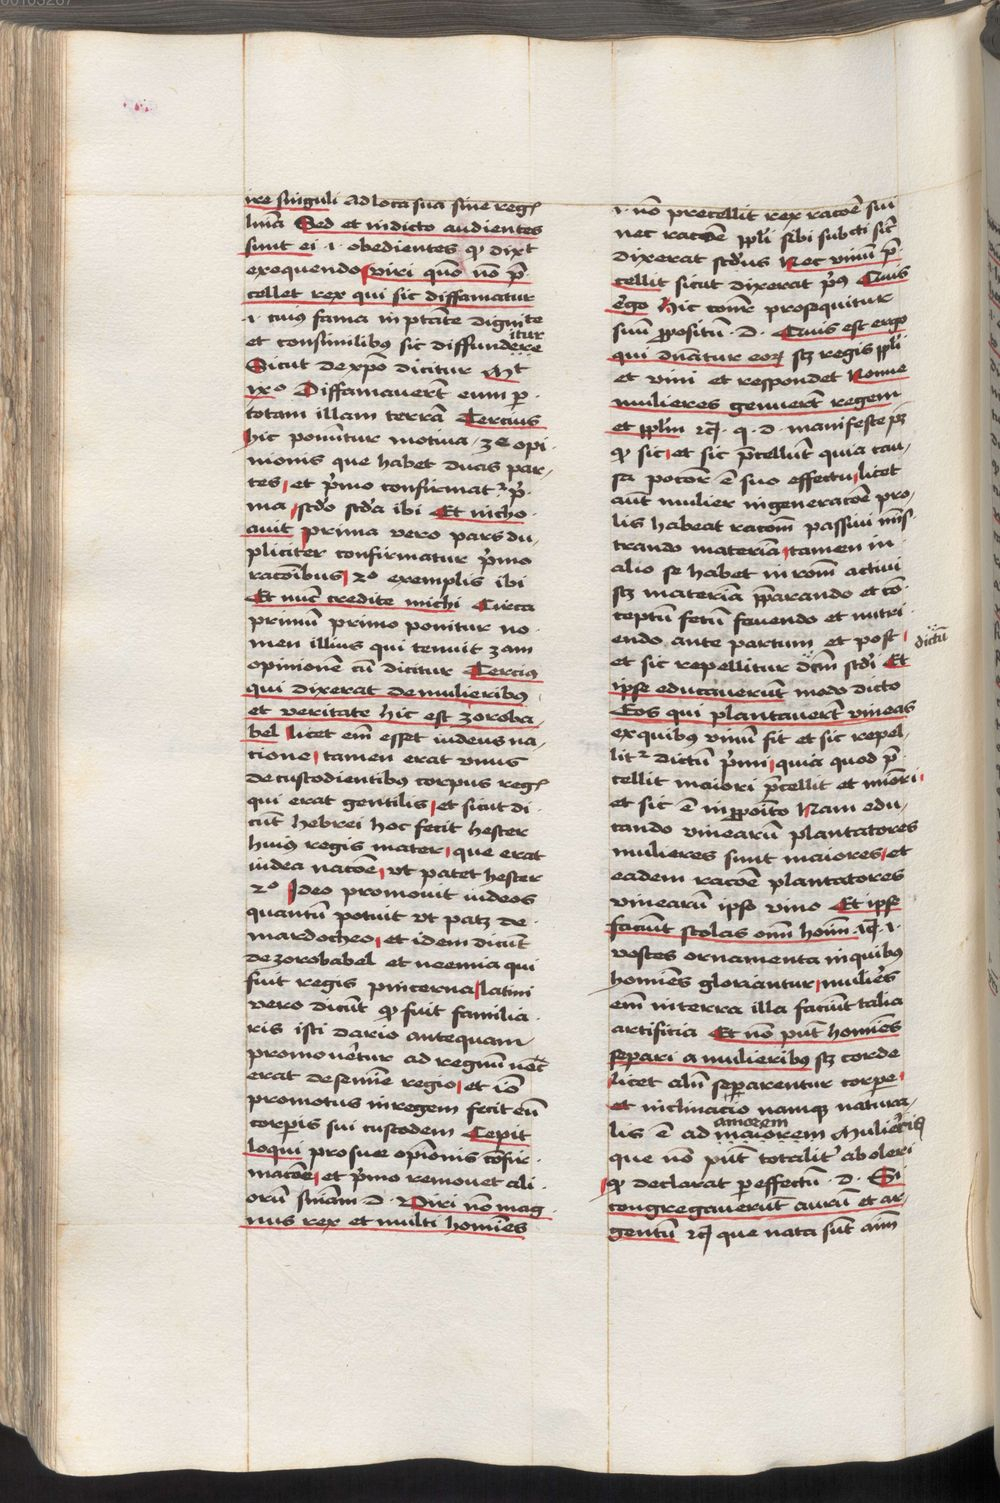 ire singuli ad loca sua sine reg̃
lnīa Sed et in dicto audientes
sunt ei ·i· obedientes qꝫ dixt
exequendo viri quō nō p̄
cellet rex qui sic diffamatur
·i· cuiꝰ fama in ptāte dignitate
et consimilibꝰ sic diffunditur
Sicut de xp̄o dicitur Mt
ixº Diffamauer̄t eum p
totam illam terrā Tercius
hic ponūtur motiua 3e opi
nionis que habet duas par
tes et p̄mo confirmat᷑ p̄
ma scdo scd̄a ibi Et nicho
auit prima vero pars du
pliciter confirmatur p̄mo
racōibus 2º exemplis ibi
Et nūc credite michi Circa
primū primo ponitur no
men illius qui tenuit 3am
opinionē cū dicitur Tercius
qui dixerat de mulieribꝰ
et veritate hic est zoroba
bel licet em̄ esset iudeus na
cione tamen erat vnus
de custodientibꝰ corpus reg̃
qui erat gentilis et sicut di
cūt hebrei hoc fecit hester
huiꝰ regis mater que erat
iudea nacōe vt patet hester
2º Ideo promouit iudeos
quantū potuit vt patꝫ de
mardocheo et idem dicūt
de zorobabel et neemia qui
fuit regis pincerna latini
vero dicūt qꝫ fuit familia
ris isti dario antequam
promouēretur ad regnū nec̄
erat de semīe regio et iō
promotus in regem fecit eū
corporis sui custodem Cepit
loqui pro sue opīonis cōfir
macōe et p̄mo remouet ali
orū sniam ·d· Viri nō mag
nus rex et multi homīes
·i· nō precellit rex racōe sui
nec racōe ppl̄i sibi subcti sic̄
dixerat scd̄us Nec vinū p̄
cellit sicut dixerat p̄ꝰ Quis
ergo hic conr̄ prosequitur
suū ppositū ·d· Quis est ergo
qui dnātur eoꝝ scꝫ regis ppl̄i
et vini et respondet Nonne
mulieres genuer̄t regem
et ppl̄m ⁊cꝫ ·q·d· manifeste pꝫ
qꝫ sic et sic p̄cellūt quia cau
sa pocior ē suo effectu licet
aūt mulier in generacōe pro
lis habeat racōm passiui mīs
trando materiā tamen in
alio se habet in rōm actiui
scꝫ materiā pparando et cō
ceptū fetū fouendo et nutri
endo ante partum et post
dictū
et sic repellitur dc̄m scd̄i Et
ipse educauerunt modo dicto
Eos qui plantauer̄t vineas
ex quibꝰ vinū fit et sic repel
lit᷑ dictū p̄mi quia quod p̄
cellit maiori p̄cellit et miōri
et sic ē in ppōito Nam edu
cando vinearū plantatores
mulieres sunt maiores et
eadem racōe plantatores
vinearū ipso vino Et ipse
faciūt stolas om̄ hoīm ⁊cꝫ ·i·
vestes ornamenta in quibꝰ
homīes gloriantur muliēs
em̄ in terra illa faciūt talia
artificia Et nō pn̄t homīes
separi a mulieribꝰ scꝫ corde
licet alīn separentur corpe
et inclinacio namqꝫ natura
lis ē ad maiorem amorem mulieris
que nō pūt totalit᷑ aboleri
qꝫ declarat per effectū ·d· Si
congregauerūt aurū et ar
gentū ⁊cꝫ que nata sūt aīm